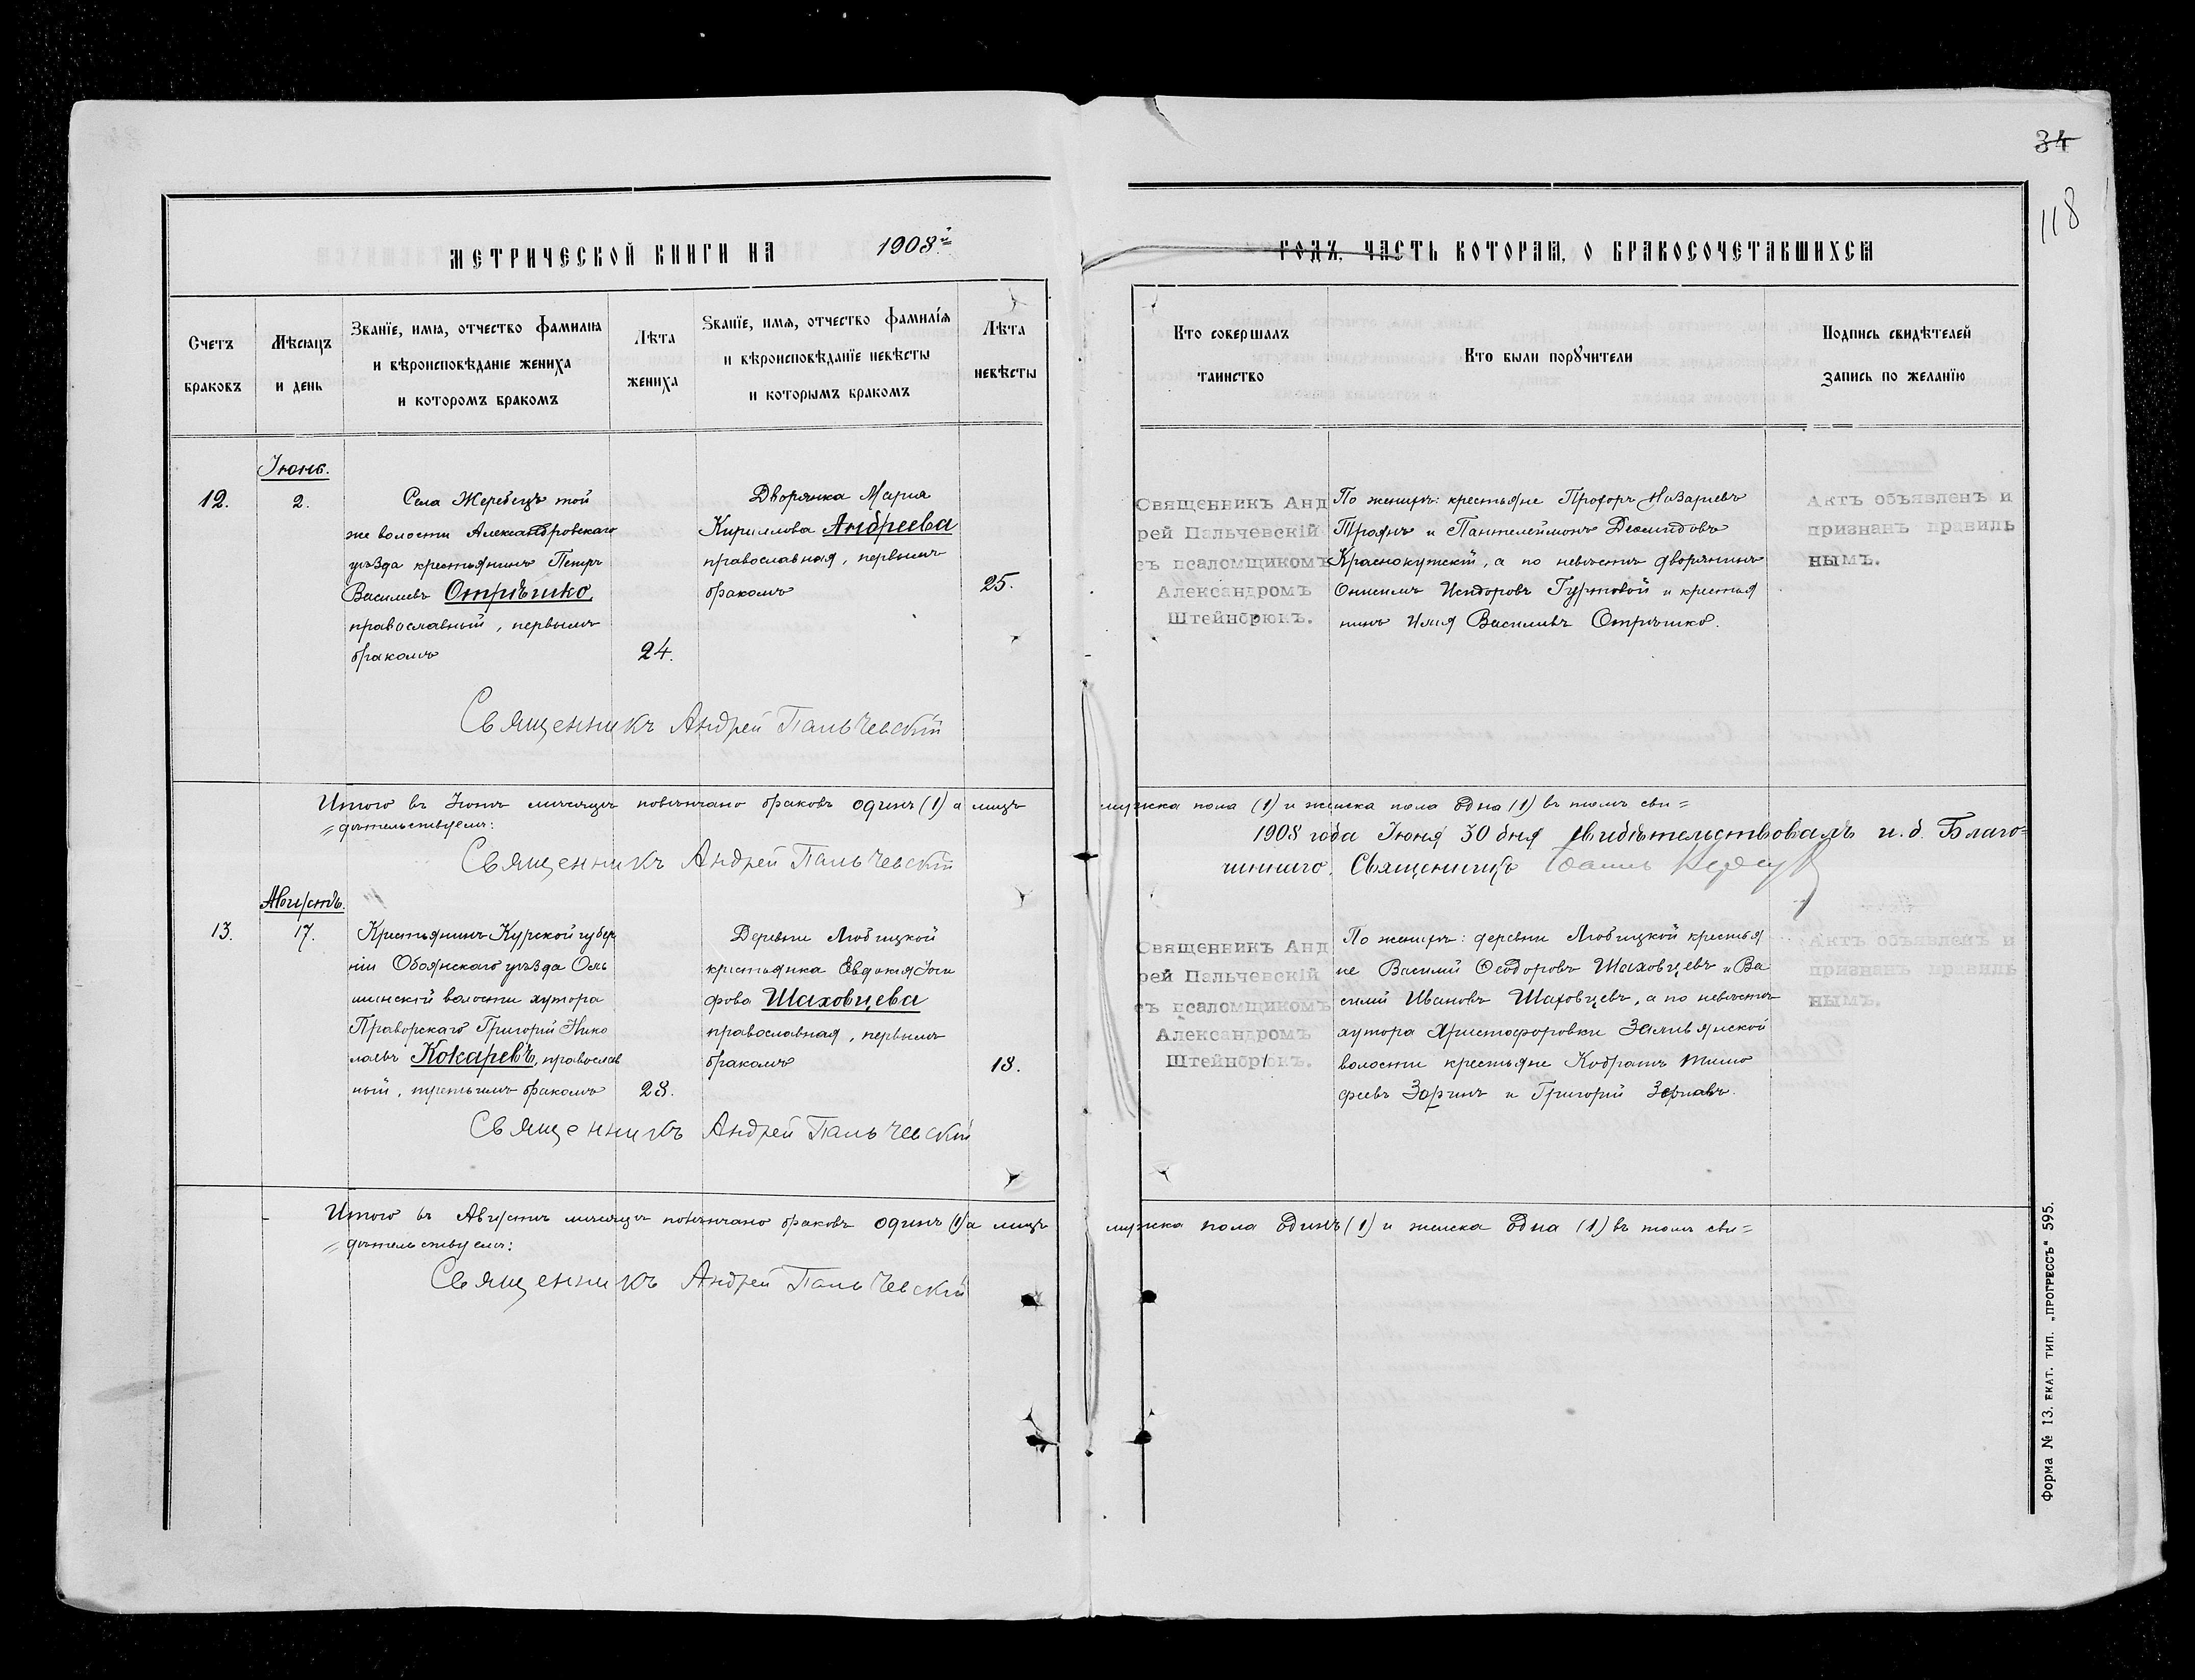 34
118
МЕТРИЧЕСКОЙ КНИГИ НА 1908й
ГОДЪ, ЧАСТЬ КОТОРАЯ, О БРАКОСОЧЕТАВШИХСЯ
Счетъ
браковъ
Мѣсяцъ
и день
Званіе, имя, отчество фамилія
и вѣроисповѣданіе жениха
и которомъ бракомъ
Лѣта
жениха
Званіе, имя, отчество фамилія
и вѣроисповѣданіе невѣсты
и которымъ бракомъ
Лѣта
невѣсты
Кто совершалъ
таинство
Кто были поручители
Подпись свидѣтелей
запись по желанію
Іюнь.
12.
2.
Села Жеребецъ той
же волости Александровскаго
уѣзда крестьянинъ Петръ
Василіевъ Отрѣшко,
православный, первымъ
бракомъ
24.
Дворянка Марія
Кириллова Андреева
православная, первымъ
бракомъ
25.
Священникъ Анд
рей Пальчевскій
съ псаломщикомъ
Александромъ
Штейнбрюкъ.
По женихѣ: крестьяне Прохоръ Назаріевъ
Троянъ и Пантелеймонъ Деомидовъ
Краснокутскій, а по невѣстѣ дворянинъ
Онисимъ Исидоровъ Гуртовой и крестья
нинъ Илія Василіевъ Отрѣшко.
Актъ объявленъ и
признанъ правиль
нымъ.
Священникъ Андрей Пальчевскій
Итого въ Іюнѣ мѣсяцѣ повѣнчано браковъ одинъ (1) а лицъ
мужска пола (1) и женска пола одна (1) въ томъ сви=
=дѣтельствуемъ:
1908 года Іюня 30 дня свидѣтельствовалъ и. д. Благо=
чиннаго, Священникъ Іоаннъ
Священникъ Андрей Пальчевскій
Августъ.
13.
17.
Крестьянинъ Курской губер
ніи Обоянскаго уѣзда Оль
шинскій волости хутора
Праворскаго Григорій Нико
лаевъ Кокаревъ, православ
ный, третьимъ бракомъ
28.
Деревни Любицкой
крестьянка Евдокія Іоси
фова Шаховцева
православная, первымъ
бракомъ
18.
Священникъ Анд
рей Пальчевскій
съ псаломщикомъ
Александромъ
Штейнбрюкъ.
По женихѣ: деревни Любицкой крестья
не Василій Ѳеодоровъ Шаховцевъ и Ва
силій Ивановъ Шаховцевъ, а по невѣстѣ
хутора Христофоровки Заливянской
волости крестьяне Кодратъ Тимо
феевъ Зоринъ и Григорій
Актъ объявленъ и
признанъ правиль
нымъ.
Священникъ Андрей Пальчевскій
Итого въ Августѣ мѣсяцѣ повѣнчано браковъ одинъ (1) а лицъ
мужска пола одинъ (1) и женска одна (1) въ томъ сви=
=дѣтельствуемъ:
Священникъ Андрей Пальчевскій
Форма № 13. ЕКАТ. ТИП. „ПРОГРЕССЪ" 595.